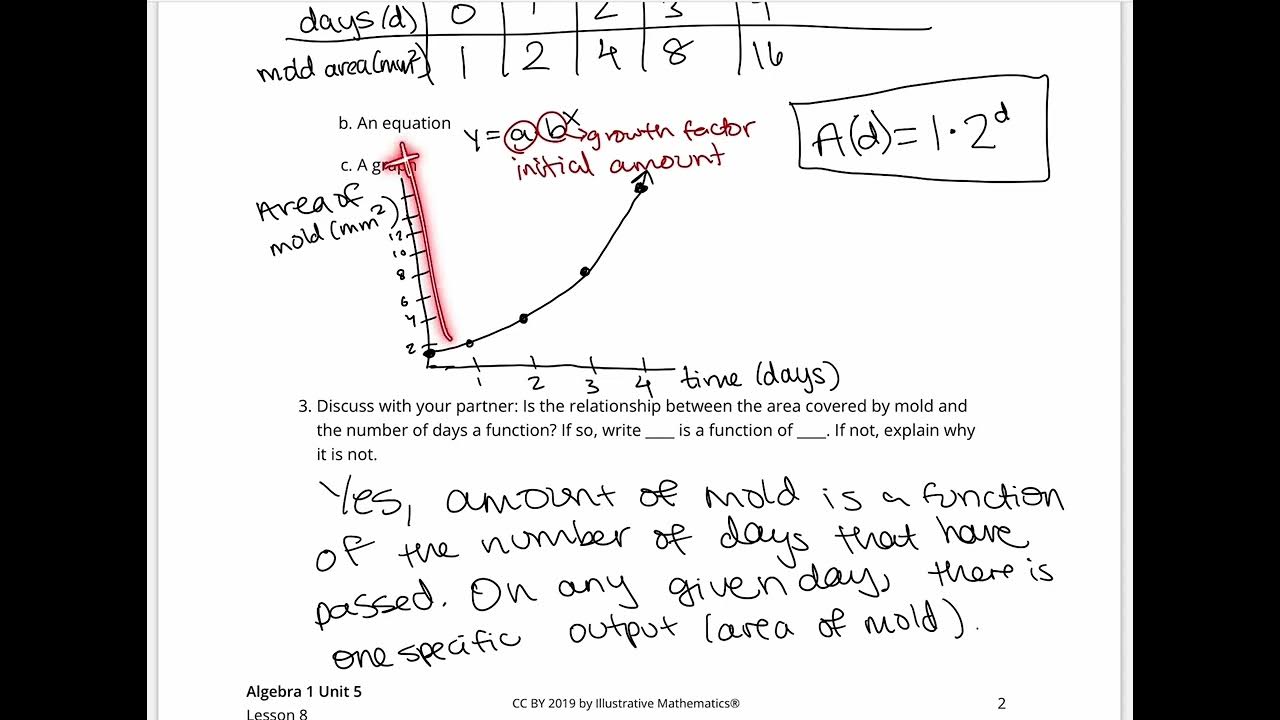 days (d) 0 1 2 3 4
mold area (mm²) 1 2 4 8 16
b. An equation y = a b^x → growth factor
A(d) = 1 · 2^d
c. A graph initial amount
Area of
mold (mm²)
12
10
8
6
4
2
1 2 3 4 time (days)
3. Discuss with your partner: Is the relationship between the area covered by mold and
the number of days a function? If so, write ____ is a function of ____. If not, explain why
it is not.
Yes, amount of mold is a function
of the number of days that have
passed. On any given day, there is
one specific output (area of mold).
Algebra 1 Unit 5
Lesson 8
CC BY 2019 by Illustrative Mathematics®
2